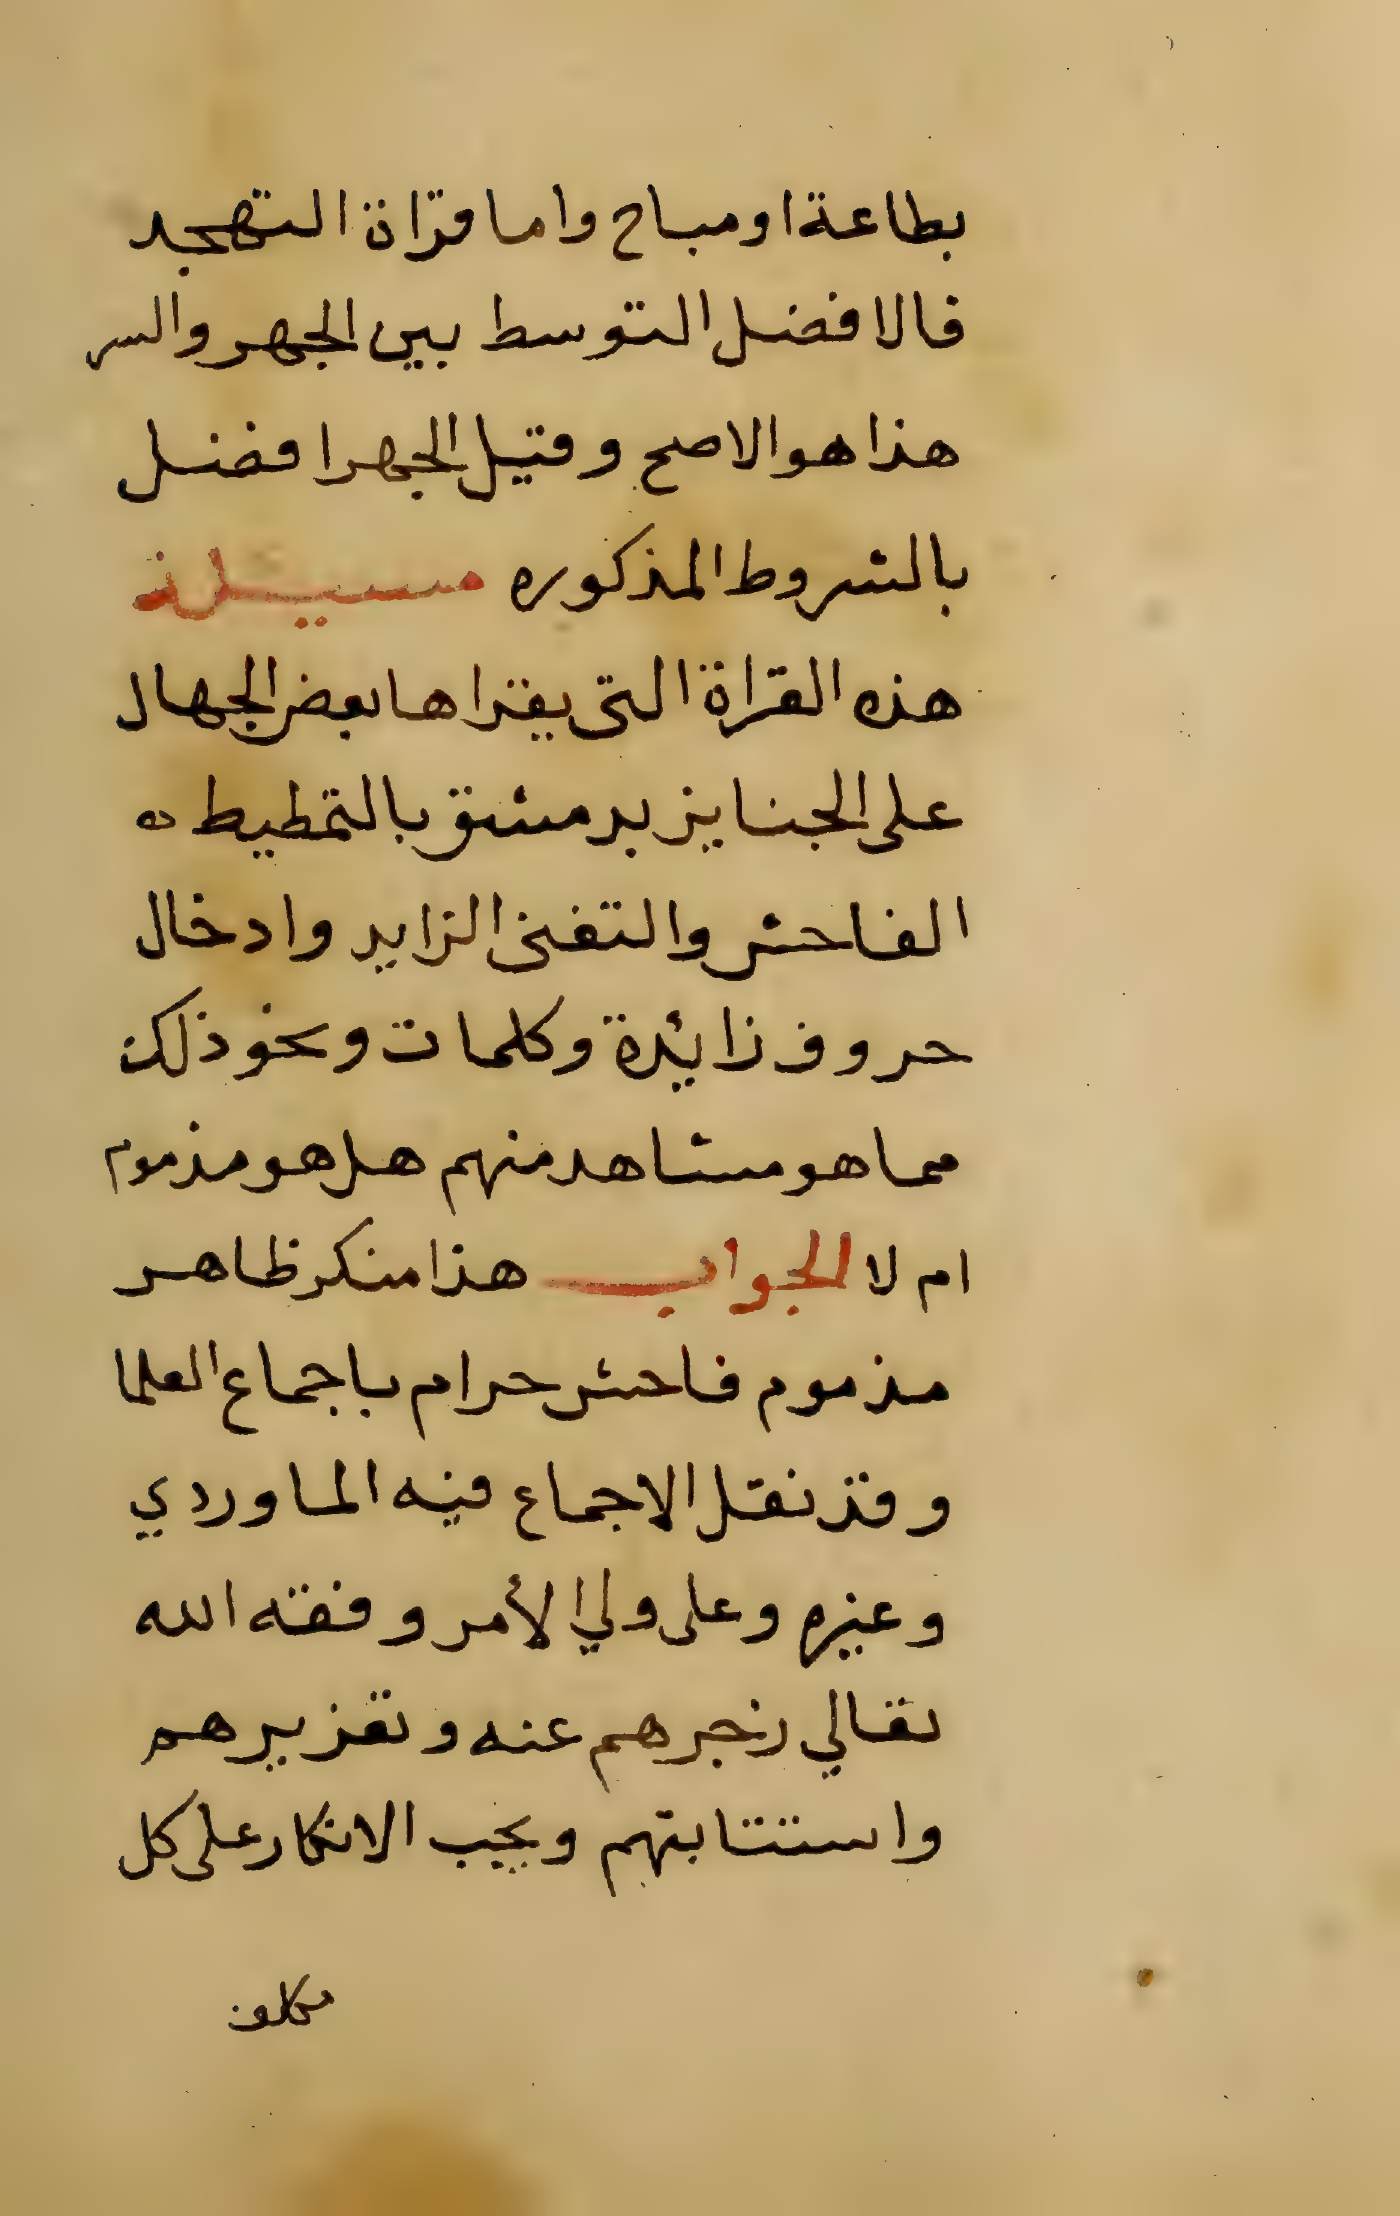 بطاعة او مباح واما قراة التهجد
فالافضل التوسط بين الجهر والسر
هذا هو الاصح وقيل الجهر افضل
بالشروط المذكوره مسيلة
هذه القراة التى يقراها بعض الجهال
على الجنايز بدمشق بالتمطيط ه
الفاحش والتغنى الزايد وادخال
حروف زائدة وكلمات ونحو ذلك
مما هو مشاهد منهم هل هو مذموم
ام لا الجواب هذا منكر ظاهر
مذموم فاحش حرام باجماع العلما
وقد نقل الاجماع فيه الماوردي
وغيره وعلى ولي الأمر وفقه الله
تعالي زجرهم عنه وتعزيرهم
واستتابتهم ويجب الانكار على كل
مكلف